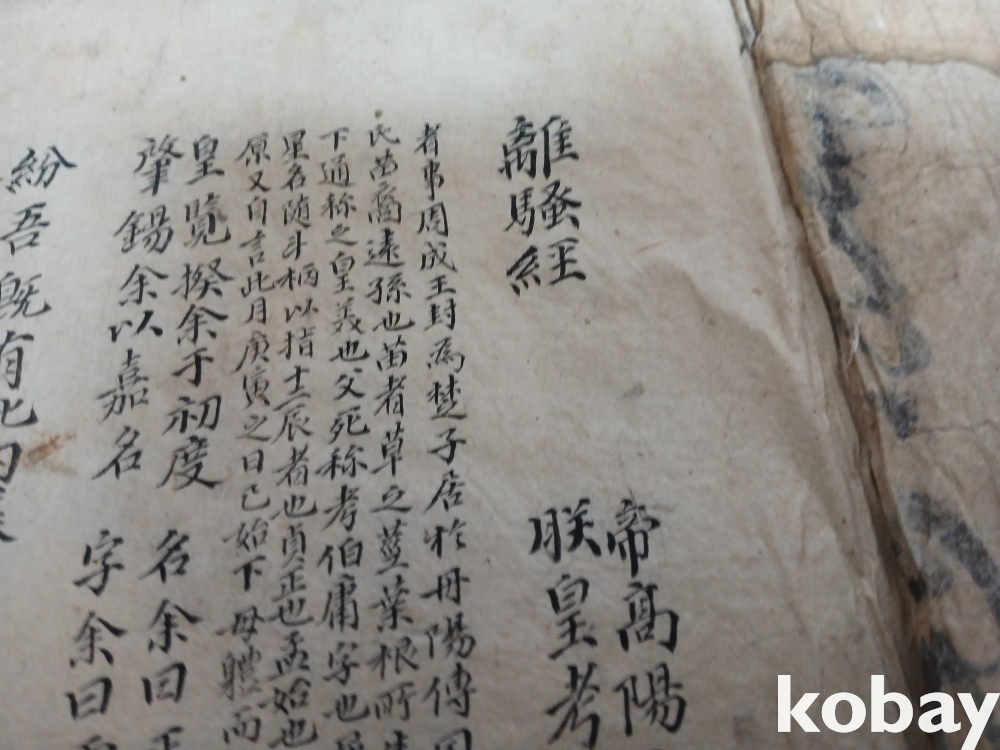 離騷經
帝高陽
朕皇考
者事周成王封為楚子居於丹陽傳國
氏苗裔遠孫也苗者草之莖葉根所生
下通称之皇義也父死称考伯庸字也
星名随斗柄以指十二辰者也貞正也孟始也
原又自言此月庚寅之日己始下母體而
皇覽揆余于初度 名余曰正
肇錫余以嘉名 字余曰
紛吾既有此内美
kobay